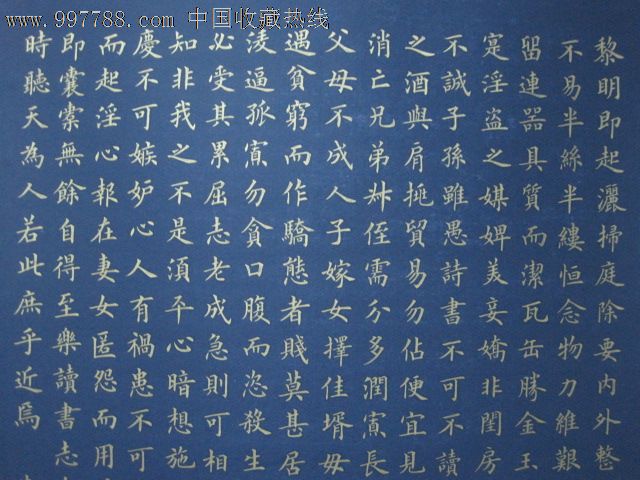 www.997788.com 中国收藏热线
黎明即起灑掃庭除要内外整
不易半絲半縷恒念物力維艱
留連器具質而潔瓦缶勝金玉
寔淫盗之媒婢美妾嬌非閨房
不誠子孫雖愚詩書不可不讀
之酒與肩挑貿易勿佔便宜見
消亡兄弟叔侄需分多潤寡長
父母不成人子嫁女擇佳壻毋
遇貧窮而作驕態者賤莫甚居
淩逼孤寡勿貪口腹而恣殺生
必受其累屈志老成急則可相
知非我之不是須平心暗想施
慶不可嫉妒心人有禍患不可
而起淫心報在妻女匿怨而用
即囊橐無餘自得至樂讀書志
時聽天為人若此庶乎近焉